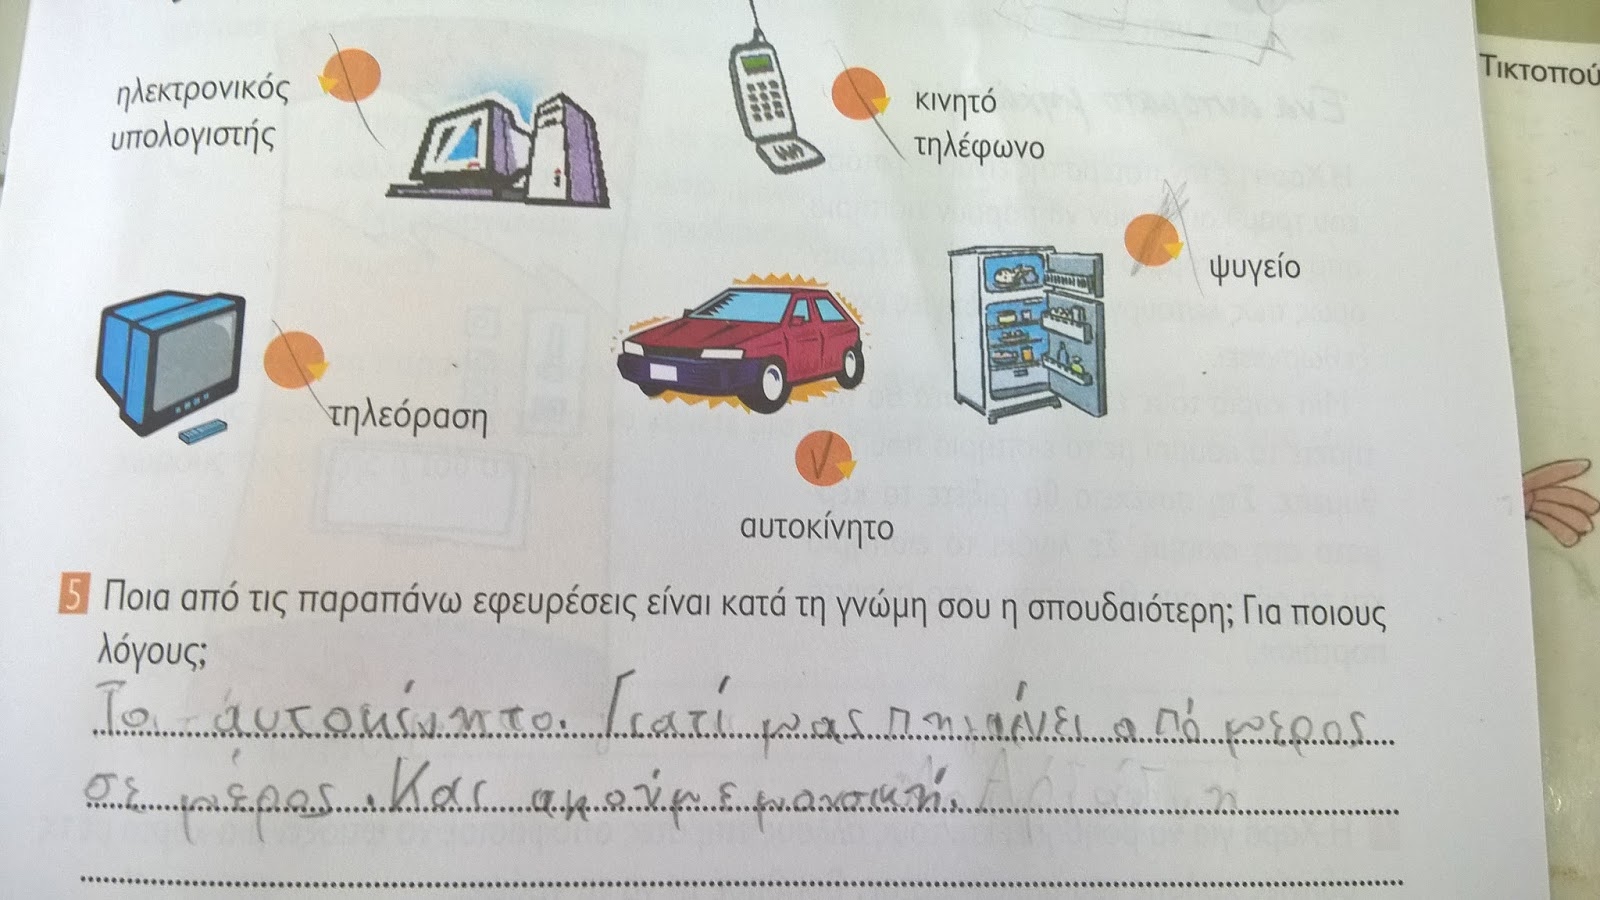 ηλεκτρονικός
υπολογιστής
κινητό
τηλέφωνο
Τικτοπού
ψυγείο
τηλεόραση
αυτοκίνητο
5 Ποια από τις παραπάνω εφευρέσεις είναι κατά τη γνώμη σου η σπουδαιότερη; Για ποιους
λόγους;
Το αυτοκίνητο. Γιατί μας πηγαίνει από μέρος
σε μέρος. Και ακούμε μουσική.